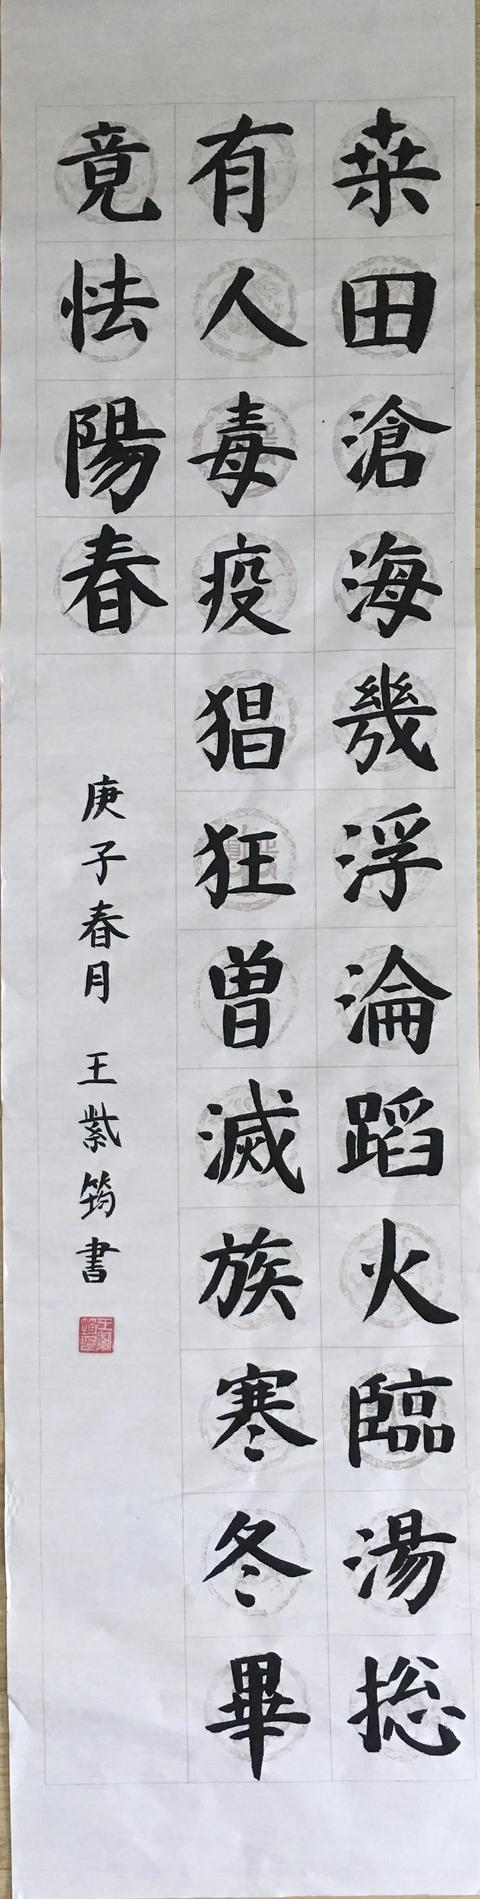 桒田滄海幾浮淪蹈火臨湯捴
有人毒疫猖狂曽滅族寒冬畢
竟怯陽春
庚子春月 王紫筠書